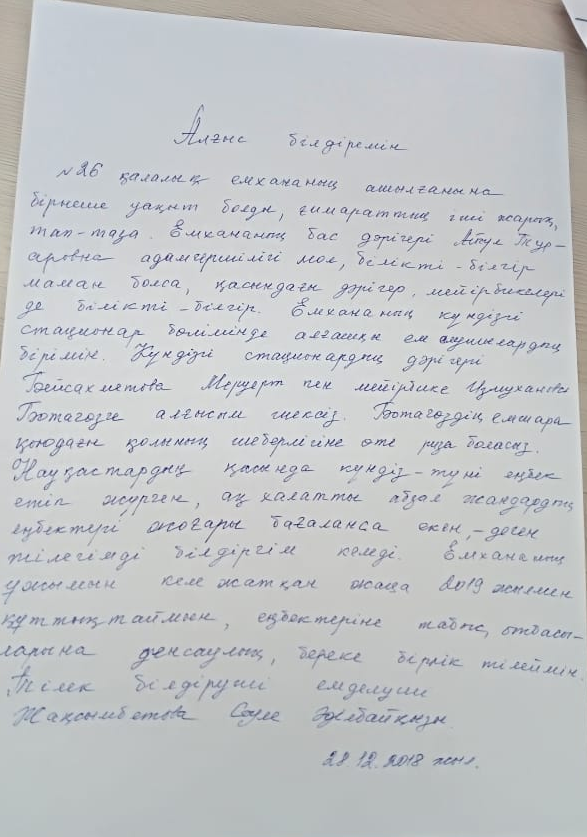 Алғыс білдіремін
№26 қалалық емхананың ашылғанына
бірнеше уақыт болды, ғимараттың іші жарық,
тап-таза. Емхананың бас дәрігері Айгул Тур-
аровна адамгершілігі мол, білікті-білгір
маман болса, қасындағы дәрігер, мейірбикелері
де білікті-білгір. Емхананың күндізгі
стационар бөлімінде алғашқы ем алушылардың
бірімін. Күндізгі стационардың дәрігері
Бейсахметова Меруерт пен мейірбике Измуханова
Ботагөзге алғысым шексіз. Ботагөздің емшара
қоюдағы қолының шеберлігіне өте риза боласыз.
Науқастардың қасында күндіз-түні еңбек
етіп жүрген, ақ халатты абзал жандардың
еңбектері жоғары бағаланса екен, - деген
тілегімді білдіргім келеді. Емхананың
ұжымын келе жатқан жаңа 2019 жылмен
құттықтаймын, еңбектеріне табыс, отбасы-
ларына денсаулық, береке бірлік тілеймін.
Тілек білдіруші емделуші
Жақсымбетова Сәуле Әділбайқызы.
28.12.2018 жыл.